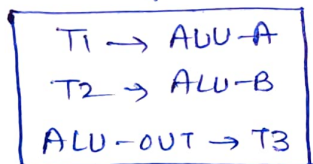 T1 → ALU-A
T2 → ALU-B
ALU-OUT → T3